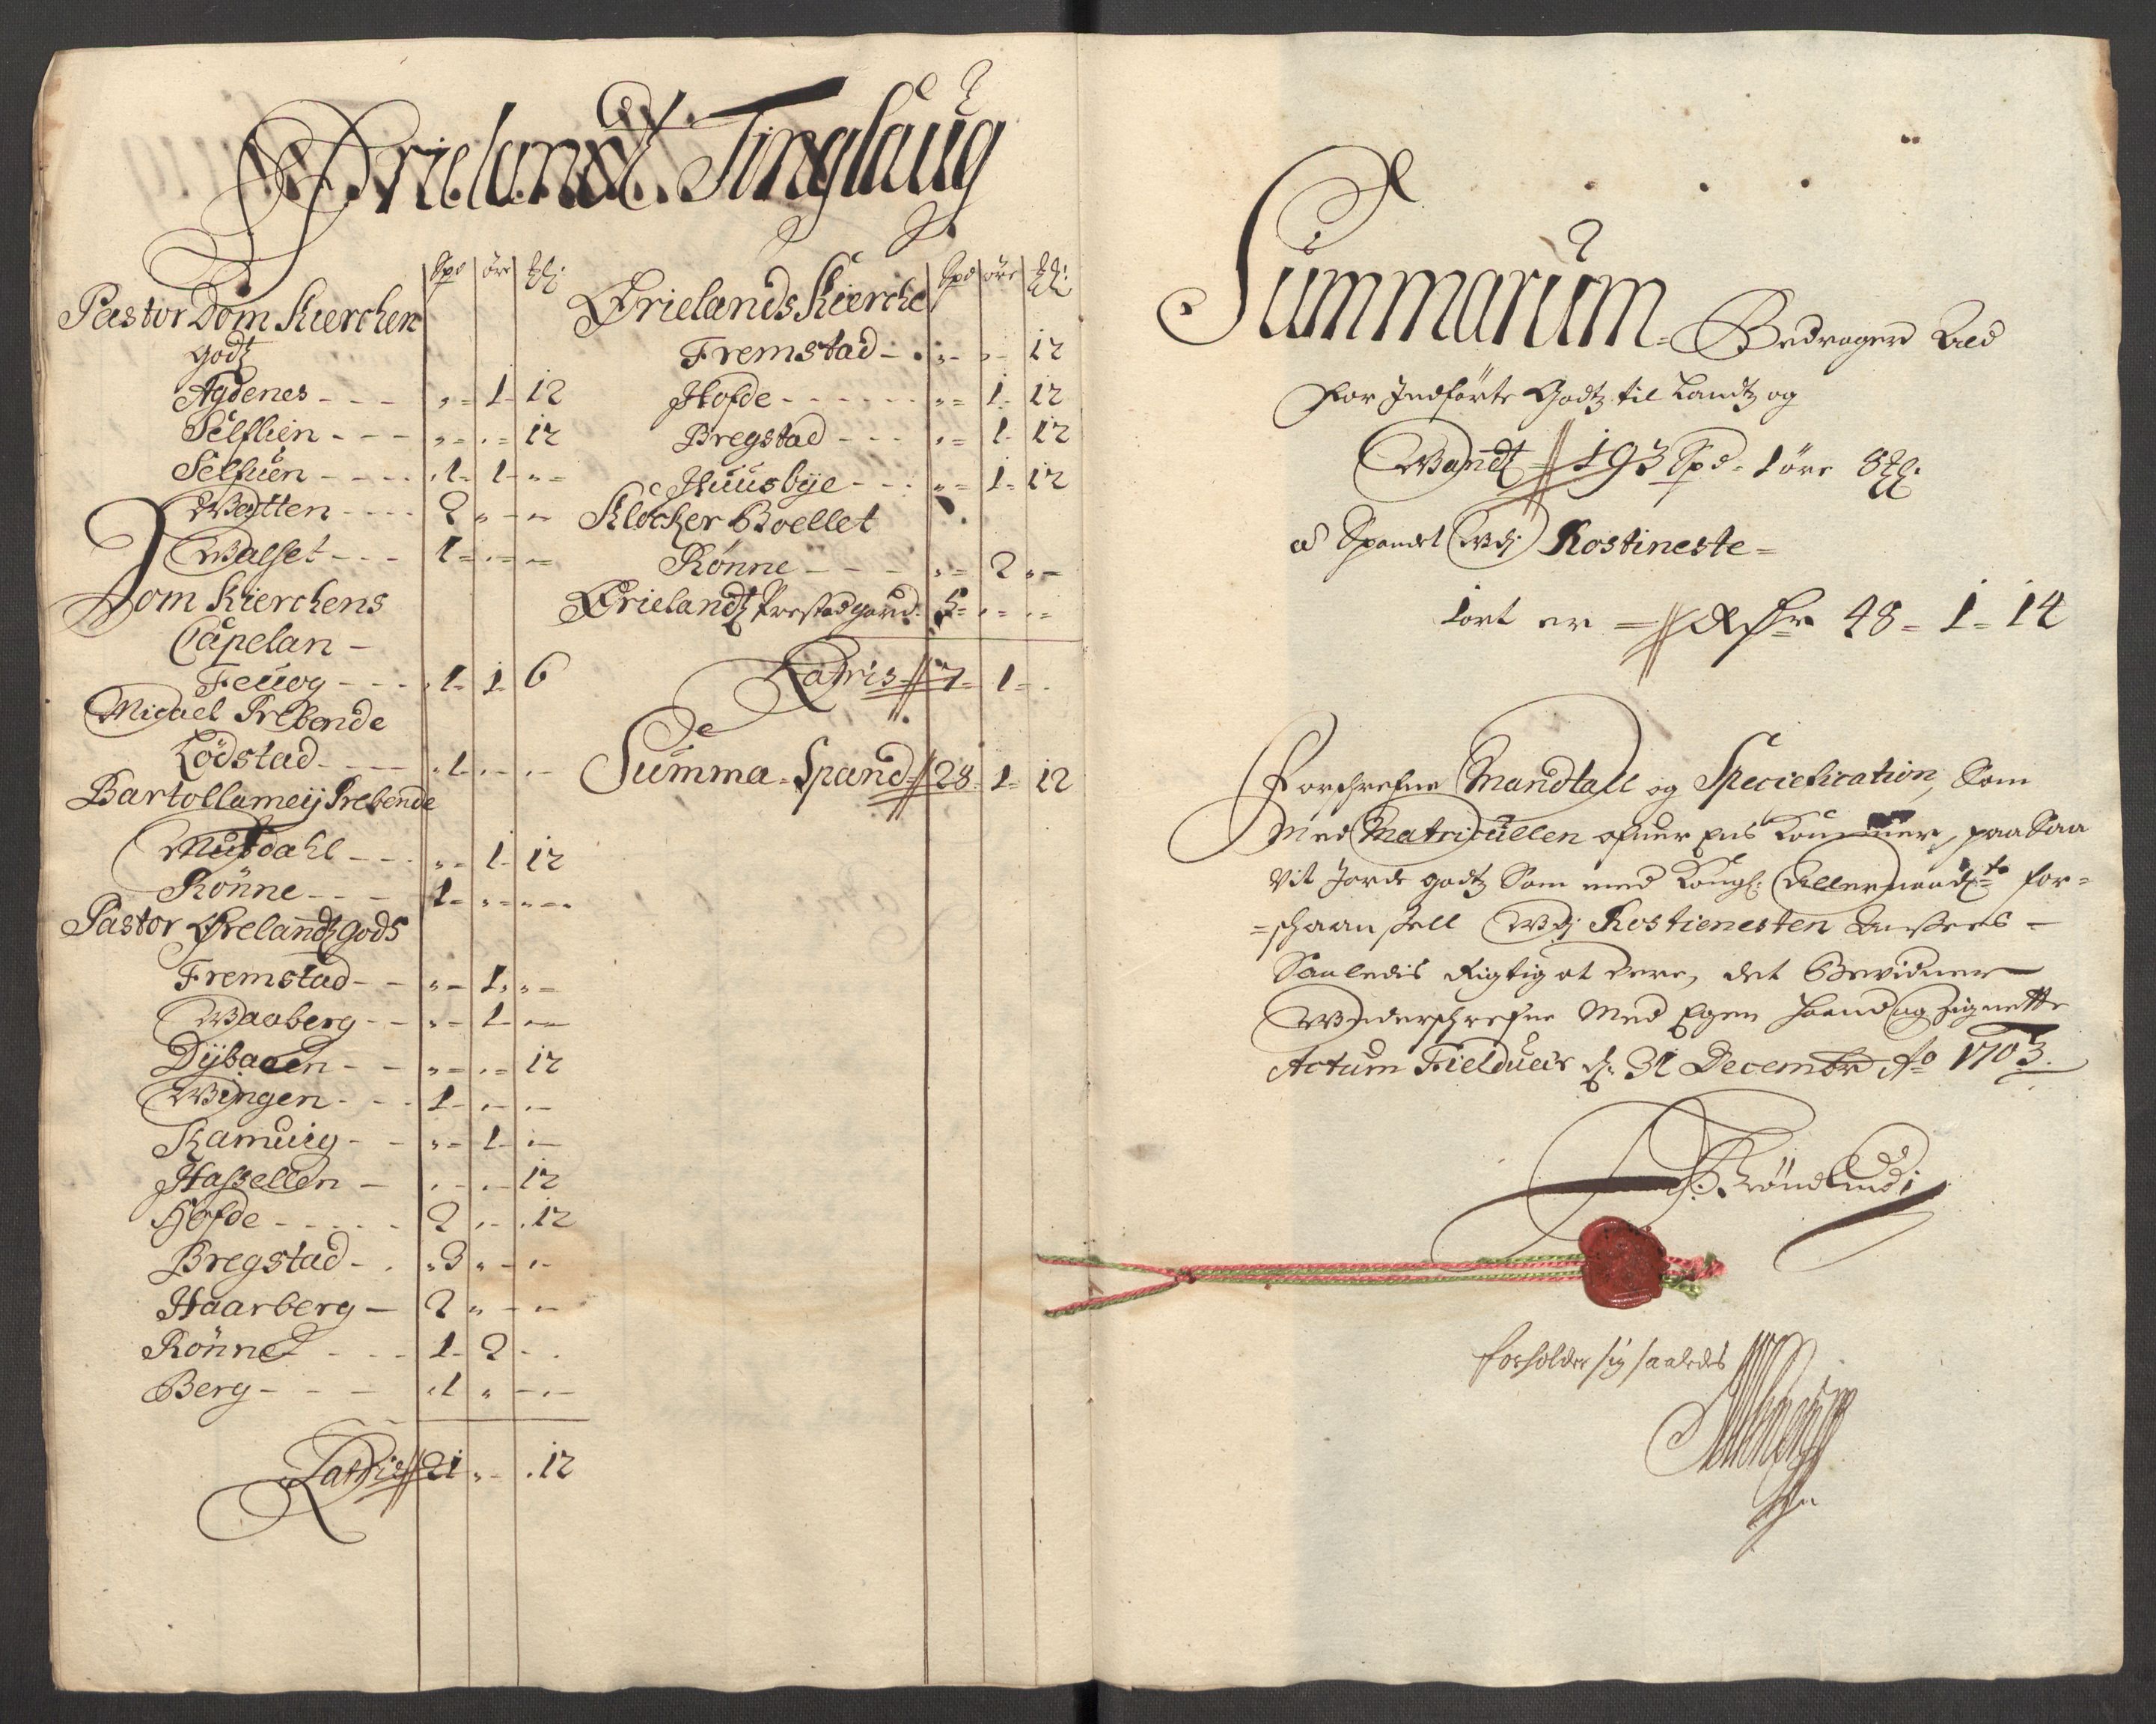 Ørielandt Tinglaug
Spd öre ɱl:
Pastor Dom Kierchen
godtz
Agdenes - - - „ - 1 - 12
Selflien - - - „ - „ - 12
Selfuen - - - - 1 - 1 - „ -
Wøtten - - - - 2 „ - „ -
Walset - - - 1 - „ - „ -
Dom Kierchens
Capelan -
Feuog - - - 1 - 1 - 6
Micael Prebende
Lödstad - - - - 1 - „ - „ -
Bartollameij Prebende
Musdahl - - - „ - 1 - 12
Rönne - - - 1 - „ - „ - -
Pastor Ørelandtz gods
Fremstad - - „ - 1 „ „ -
Waaberg - - „ - 1 - „ -
Dybaaen - - „ - „ - 12
Wingen - - - 1 - „ - „ -
Kamuig - - „ - 1 - „ -
Hassellen - „ - „ - 12
Hofde - - - - - 2 „ - 12
Bregstad - . 3 „ - „ -
Haarberg - 2 „ - „ -
Rönne - - - 1 - 2 - .
Berg - - - 1 „ - „ -
Latris // 21 „ - 12
Spd öre
Ørielands Kierche
Fremstad - . „ - „ - 12
Hofde - - - - - - „ - 1 - 12
Bregstad - - - „ - 1 - 12
Huusbye - - - „ - 1 - 12
Klocker Boellet
Rönne - - - - „ - 2 „ -
Ørielandtz Prestedgaard. 5 - „ - „ -
Latris - // 7 - 1 - .
Summa - Spand // 28 - 1 - 12
Summarum - Bedrager
For Indförte Godtz til Landtz og
Wandt // 193 Spd - 1 öre 8
a Spandet Wdj Rostineste -
1 ort er - // 48 - 1 - 14
Forschrefne Mandtall og Speciefication, Som
Med Matricullen ofuer Eens Kommer, paa Saa
Vit Jorde godtz Som med Kongl: Allernaadste for-
= Wdj Rostienesten -
Saaledis Rigtig at Vere, det Bevidner
Wnderschrefne Med Egen haand og Zignette
Actum Fielduer d: 31 Decembr Ao 1703.
forholder sig saaledes